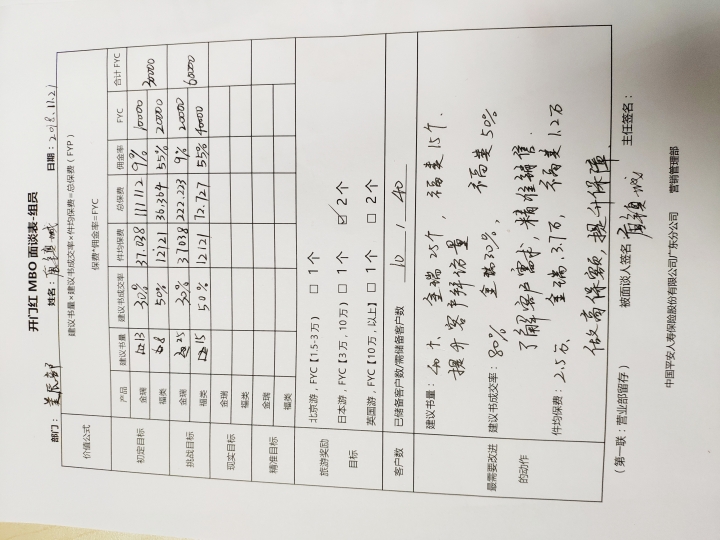 开门红 MBO 面谈表-组员
部门： 姓名： 日期：2018.11.21
价值公式 建议书量×建议书成交率×件均保费=总保费（FYP）
保费*佣金率=FYC
产品 建议书量 建议书成交率 件均保费 总保费 佣金率 FYC 合计 FYC
初定目标 金瑞 13 30% 37.038 111112 9% 10000 30000
福类 8 50% 12121 36.364 55% 20000
挑战目标 金瑞 25 30% 37038 222.223 9% 20000 60000
福类 15 50% 12121 72.727 55% 40000
现实目标 金瑞
福类
精准目标 金瑞
福类
旅游奖励 目标
北京游，FYC【1.5-3 万） □ 1 个
日本游，FYC【3 万，10 万） □ 1 个 ☑ 2 个
英国游，FYC【10 万，以上】 □ 1 个 □ 2 个
客户数 已储备客户数/需储备客户数 10 / 40
最需要改进的动作
建议书量：40个、金瑞 25个，福类 15个.
提升客户拜访量
建议书成交率：80% 金瑞30%，福类 50%
了解客户需求，精准销售.
件均保费：2.5万、金瑞.3.7万，福类 1.2万
做高保额，提升保障.
（第一联：营业部留存） 被面谈人签名： 主任签名：
中国平安人寿保险股份有限公司广东分公司 营销管理部